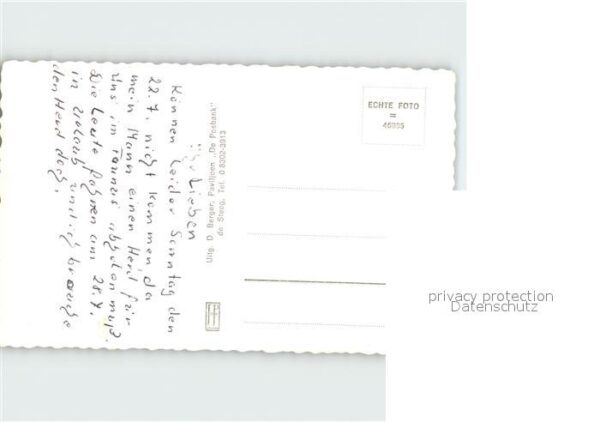 Ihr Lieben
Können leider Sonntag den
22.7. nicht kommen, da
mein Mann einen Herd für
uns im Taunus abholen muß.
Die Leute fahren am 28.7.
in Urlaub und ich brauche
den Herd doch.
Uitg. D. Berger, Paviljoen „De Posbank"
de Steeg, Tel. 0 8302-3013
ECHTE FOTO
=
46395
privacy protection
Datenschutz